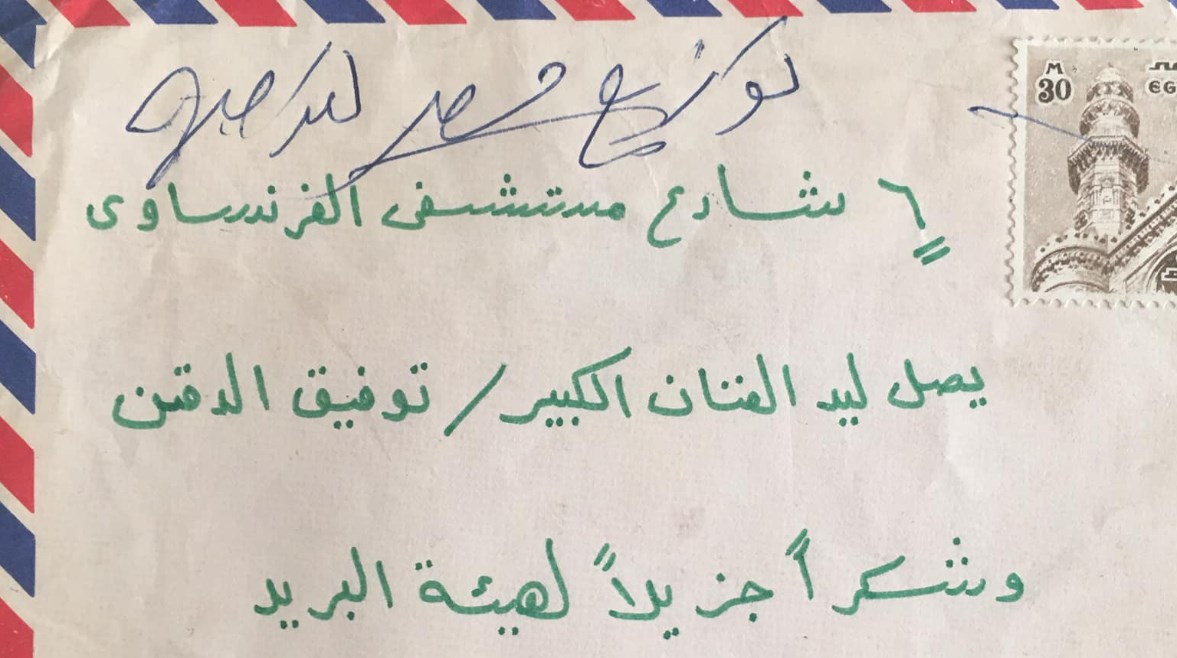 توزيع
M
30
EG
٦ شارع مستشفى الفرنساوى
يصل ليد الفنان الكبير / توفيق الدقن
وشكراً جزيلاً لهيئة البريد